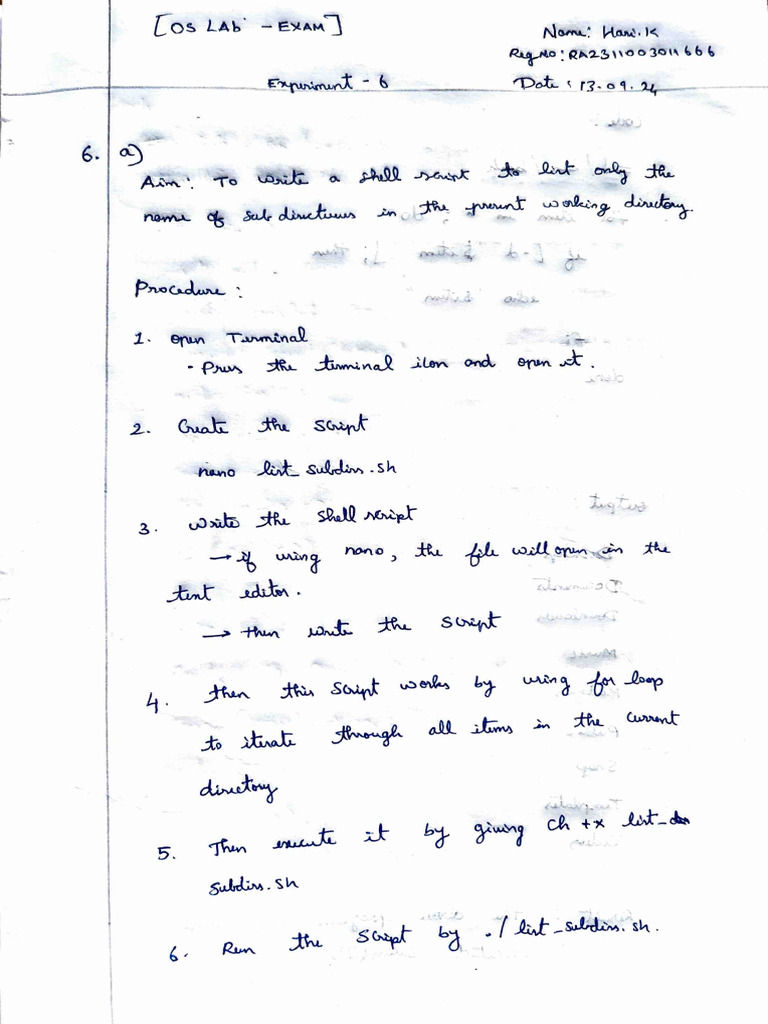 [OS LAb - EXAM]
Name: Hari.K
Reg No: RA2311003011666
Experiment - 6
Date: 13.09.24
6. a)
Aim: To write a shell script to list only the
name of sub directories in the present working directory.
Procedure:
1. open Terminal
- Press the terminal icon and open it.
2. Create the script
nano list_subdirs.sh
3. write the shell script
→ if using nano, the file will open in the
text editor.
→ then write the script
4. then this script works by using for loop
to iterate through all items in the current
directory
5. Then execute it by giving ch +x list_
subdirs.sh
6. Run the script by ./list_subdirs.sh.